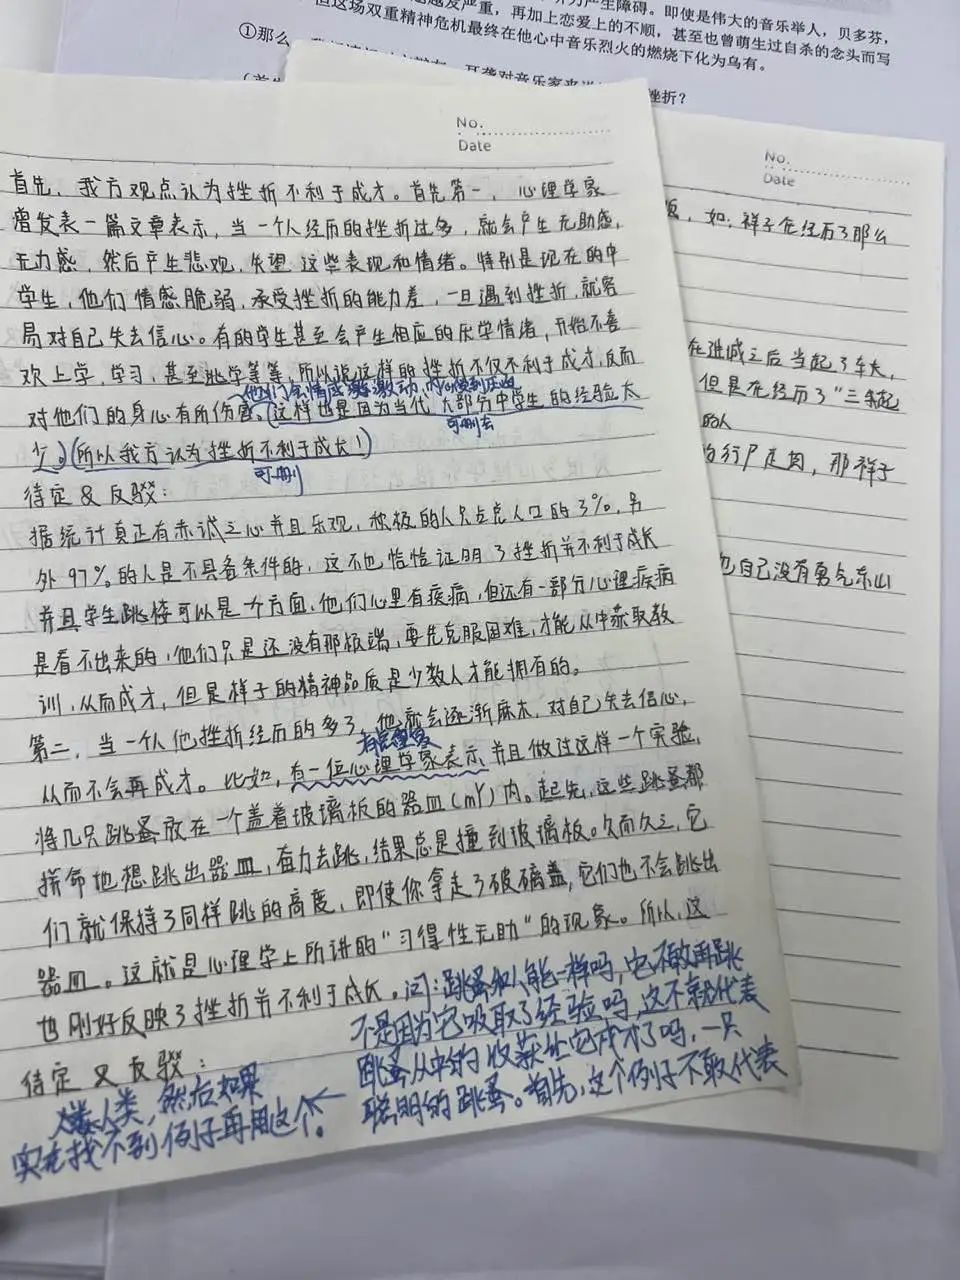 产生障碍。即使是伟大的音乐举人，贝多芬，
越发严重，再加上恋爱上的不顺，甚至也曾萌生过自杀的念头而写
但这场双重精神危机最终在他心中音乐烈火的燃烧下化为乌有。
①那么
耳聋对音乐家来说
挫折？
No.
Date
首先，我方观点认为挫折不利于成才。首先第一，心理学家
曾发表一篇文章表示，当一个人经历的挫折过多，就会产生无助感，
无力感，然后产生悲观，失望这些表现和情绪。特别是现在的中
学生，他们情感脆弱，承受挫折的能力差，一旦遇到挫折，就容
易对自己失去信心。有的学生甚至会产生相应的厌学情绪，开始不喜
欢上学，学习，甚至逃学等等，所以说这样的挫折不仅不利于成才，反而
他们会情感 激动，内心受到压迫
对他们的身心有所伤害。(这样也是因为当代大部分中学生的经验太
可删去
少。)(所以我方认为挫折不利于成长！)
可删
待定&反驳：
据统计真正有赤诚之心并且乐观，积极的人只占总人口的3%，另
外97%的人是不具备条件的，这不也恰恰证明了挫折并不利于成长
并且学生跳楼可以是一方面，他们心里有疾病，但还有一部分心理疾病
是看不出来的，他们只是还没有那极端，要先克服困难，才能从中获取教
训，从而成才，但是样子的精神品质是少数人才能拥有的。
第二，当一个人他挫折经历的多了，他就会逐渐麻木，对自己失去信心，
有心理学家
从而不会再成才。比如，有一位心理学家表示并且做过这样一个实验，
将几只跳蚤放在一个盖着玻璃板的器皿(mǐ)内。起先，这些跳蚤都
拼命地想跳出器皿，奋力去跳，结果总是撞到玻璃板。久而久之，它
们就保持了同样跳的高度，即使你拿走了破璃盖，它们也不会跳出
器皿。这就是心理学上所讲的“习得性无助”的现象。所以，这
也刚好反映了挫折并不利于成长。问：跳蚤和人能一样吗，它不敢再跳
不是因为它吸取了经验吗，这不就代表
待定又反驳：
跳蚤从中的收获让它成才了吗，一只
聪明的跳蚤。首先，这个例子不敢代表
人类，然后如果
实在找不到例子再用这个。
No.
Date
如：祥子在经历了那么
在进城之后当起了车夫，
但是在经历了“三起
的人
的行尸走肉，那祥子
自己没有勇气东山